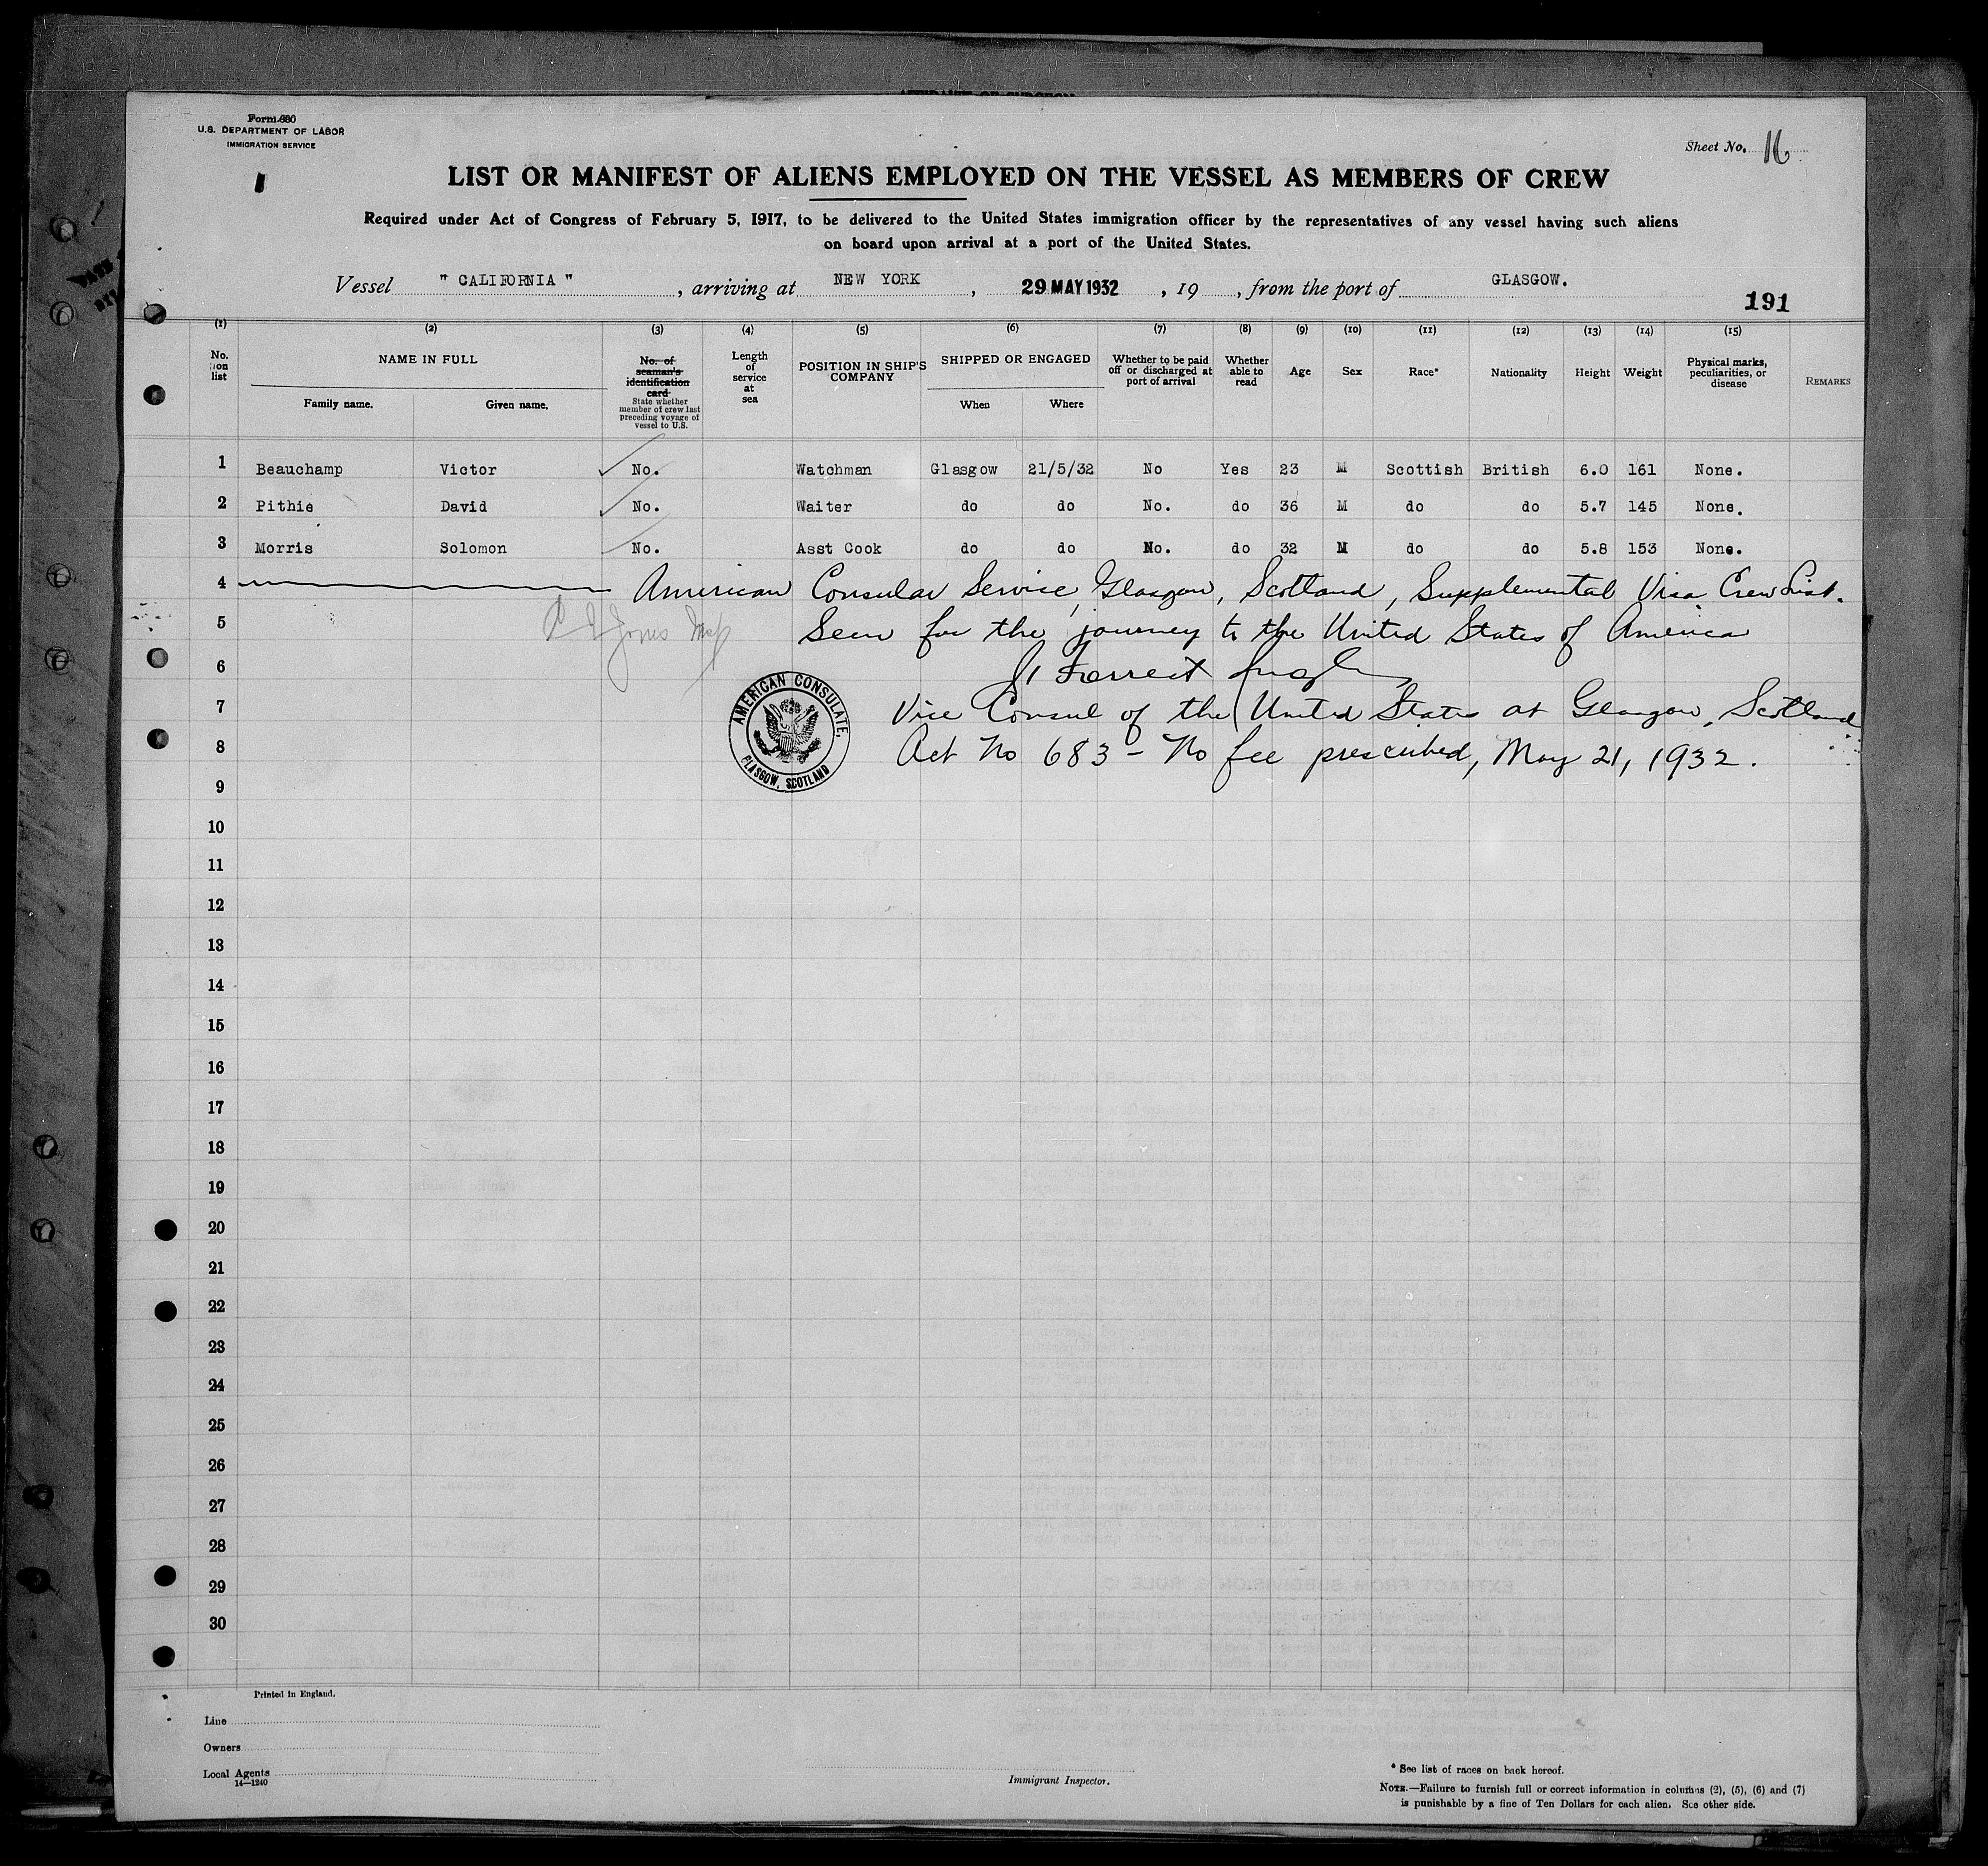 Form 680
U.S. DEPARTMENT OF LABOR
IMMIGRATION SERVICE
Sheet No. 16
LIST OR MANIFEST OF ALIENS EMPLOYED ON THE VESSEL AS MEMBERS OF CREW
Required under Act of Congress of February 5, 1917, to be delivered to the United States immigration officer by the representatives of any vessel having such aliens
on board upon arrival at a port of the United States.
Vessel "CALIFORNIA", arriving at NEW YORK, 29 MAY 1932, 19, from the port of GLASGOW.
191
(1) (2) (3) (4) (5) (6) (7) (8) (9) (10) (11) (12) (13) (14) (15)
No. on list
NAME IN FULL
Family name. Given name.
No. of seaman's identification card
State whether member of crew last preceding voyage of vessel to U.S.
Length of service at sea
POSITION IN SHIP'S COMPANY
SHIPPED OR ENGAGED
When Where
Whether to be paid off or discharged at port of arrival
Whether able to read
Age Sex Race* Nationality Height Weight
Physical marks, peculiarities, or disease
REMARKS
1 Beauchamp Victor No. Watchman Glasgow 21/5/32 No Yes 23 M Scottish British 6.0 161 None.
2 Pithie David No. Waiter do do No. do 36 M do do 5.7 145 None.
3 Morris Solomon No. Asst Cook do do No. do 32 M do do 5.8 153 None.
4 American Consular Service, Glasgow, Scotland, Supplemental Visa Crew List.
5 Seen for the journey to the United States of America
6 Forrest
7 Vice Consul of the United States at Glasgow, Scotland
8 Act No 683 - No fee prescribed, May 21, 1932.
AMERICAN CONSULATE,
GLASGOW, SCOTLAND
9
10
11
12
13
14
15
16
17
18
19
20
21
22
23
24
25
26
27
28
29
30
Printed in England.
Line
Owners
Local Agents
14—1240
Immigrant Inspector.
* See list of races on back hereof.
NOTE.—Failure to furnish full or correct information in columns (2), (5), (6) and (7)
is punishable by a fine of Ten Dollars for each alien. See other side.